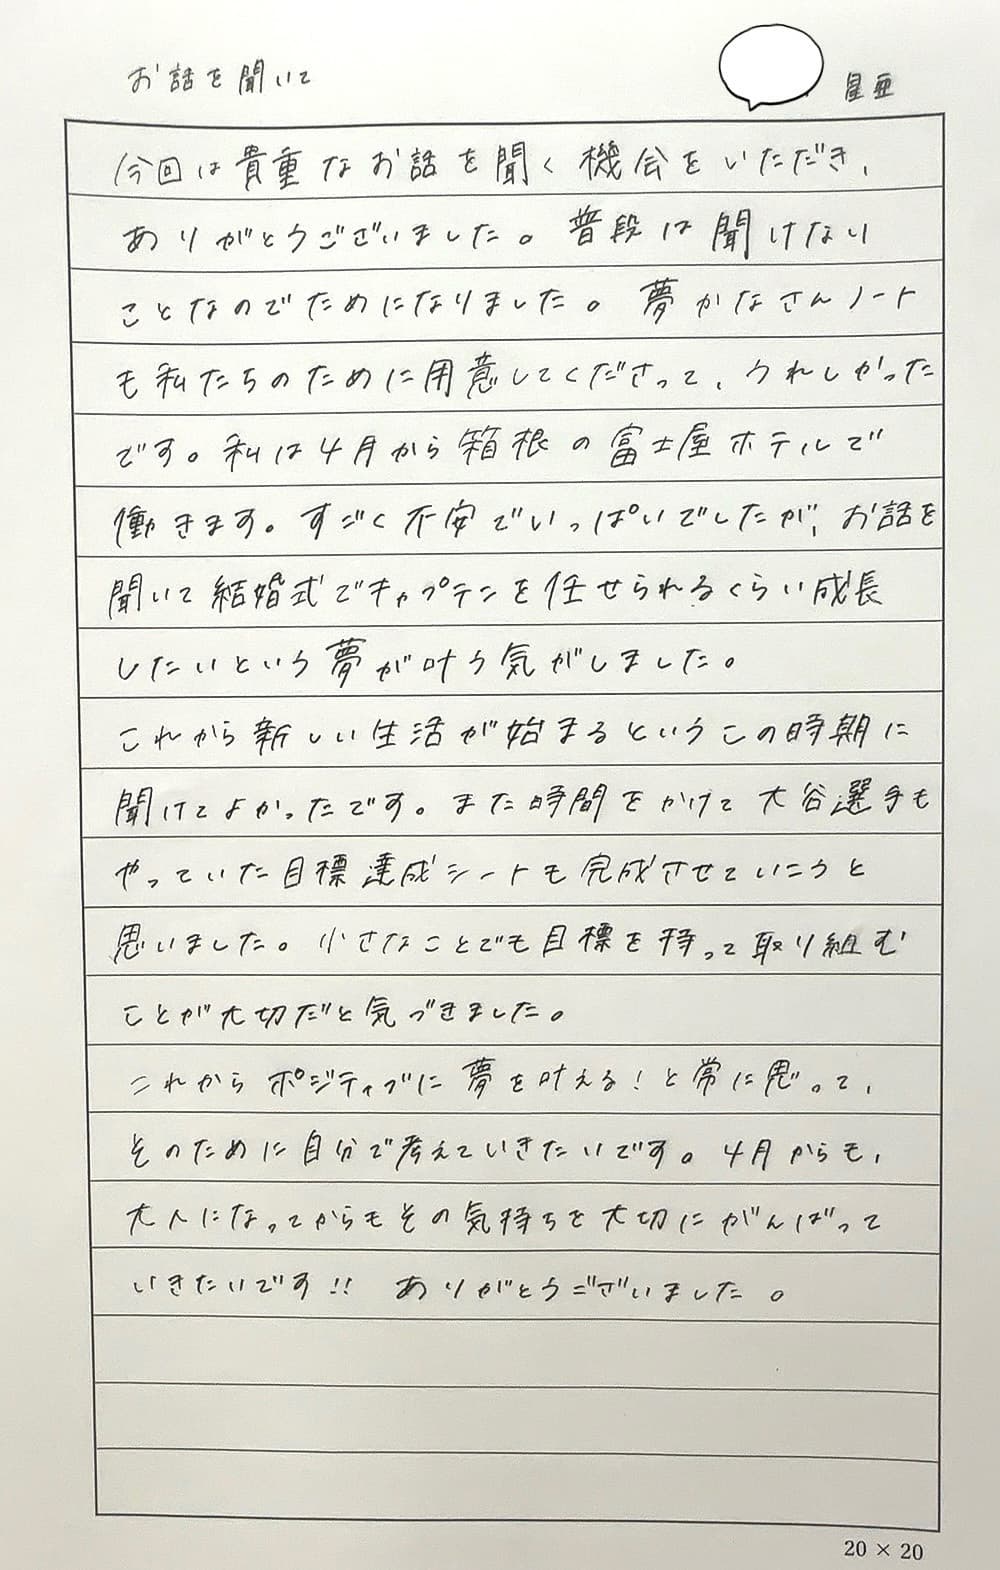 お話を聞いて
星亜
今回は貴重なお話を聞く機会をいただき、
ありがとうございました。普段は聞けない
ことなのでためになりました。夢かなさんノート
も私たちのために用意してくださって、うれしかった
です。私は4月から箱根の富士屋ホテルで
働きます。すごく不安でいっぱいでしたが、お話を
聞いて結婚式でキャプテンを任せられるくらい成長
したいという夢が叶う気がしました。
これから新しい生活が始まるというこの時期に
聞けてよかったです。また時間をかけて大谷選手も
やっていた目標達成シートも完成させていこうと
思いました。小さなことでも目標を持って取り組む
ことが大切だと気づきました。
これからポジティブに夢を叶える!と常に思って、
そのために自分で考えていきたいです。4月からも、
大人になってからもその気持ちを大切にがんばって
いきたいです!! ありがとうございました。
20×20